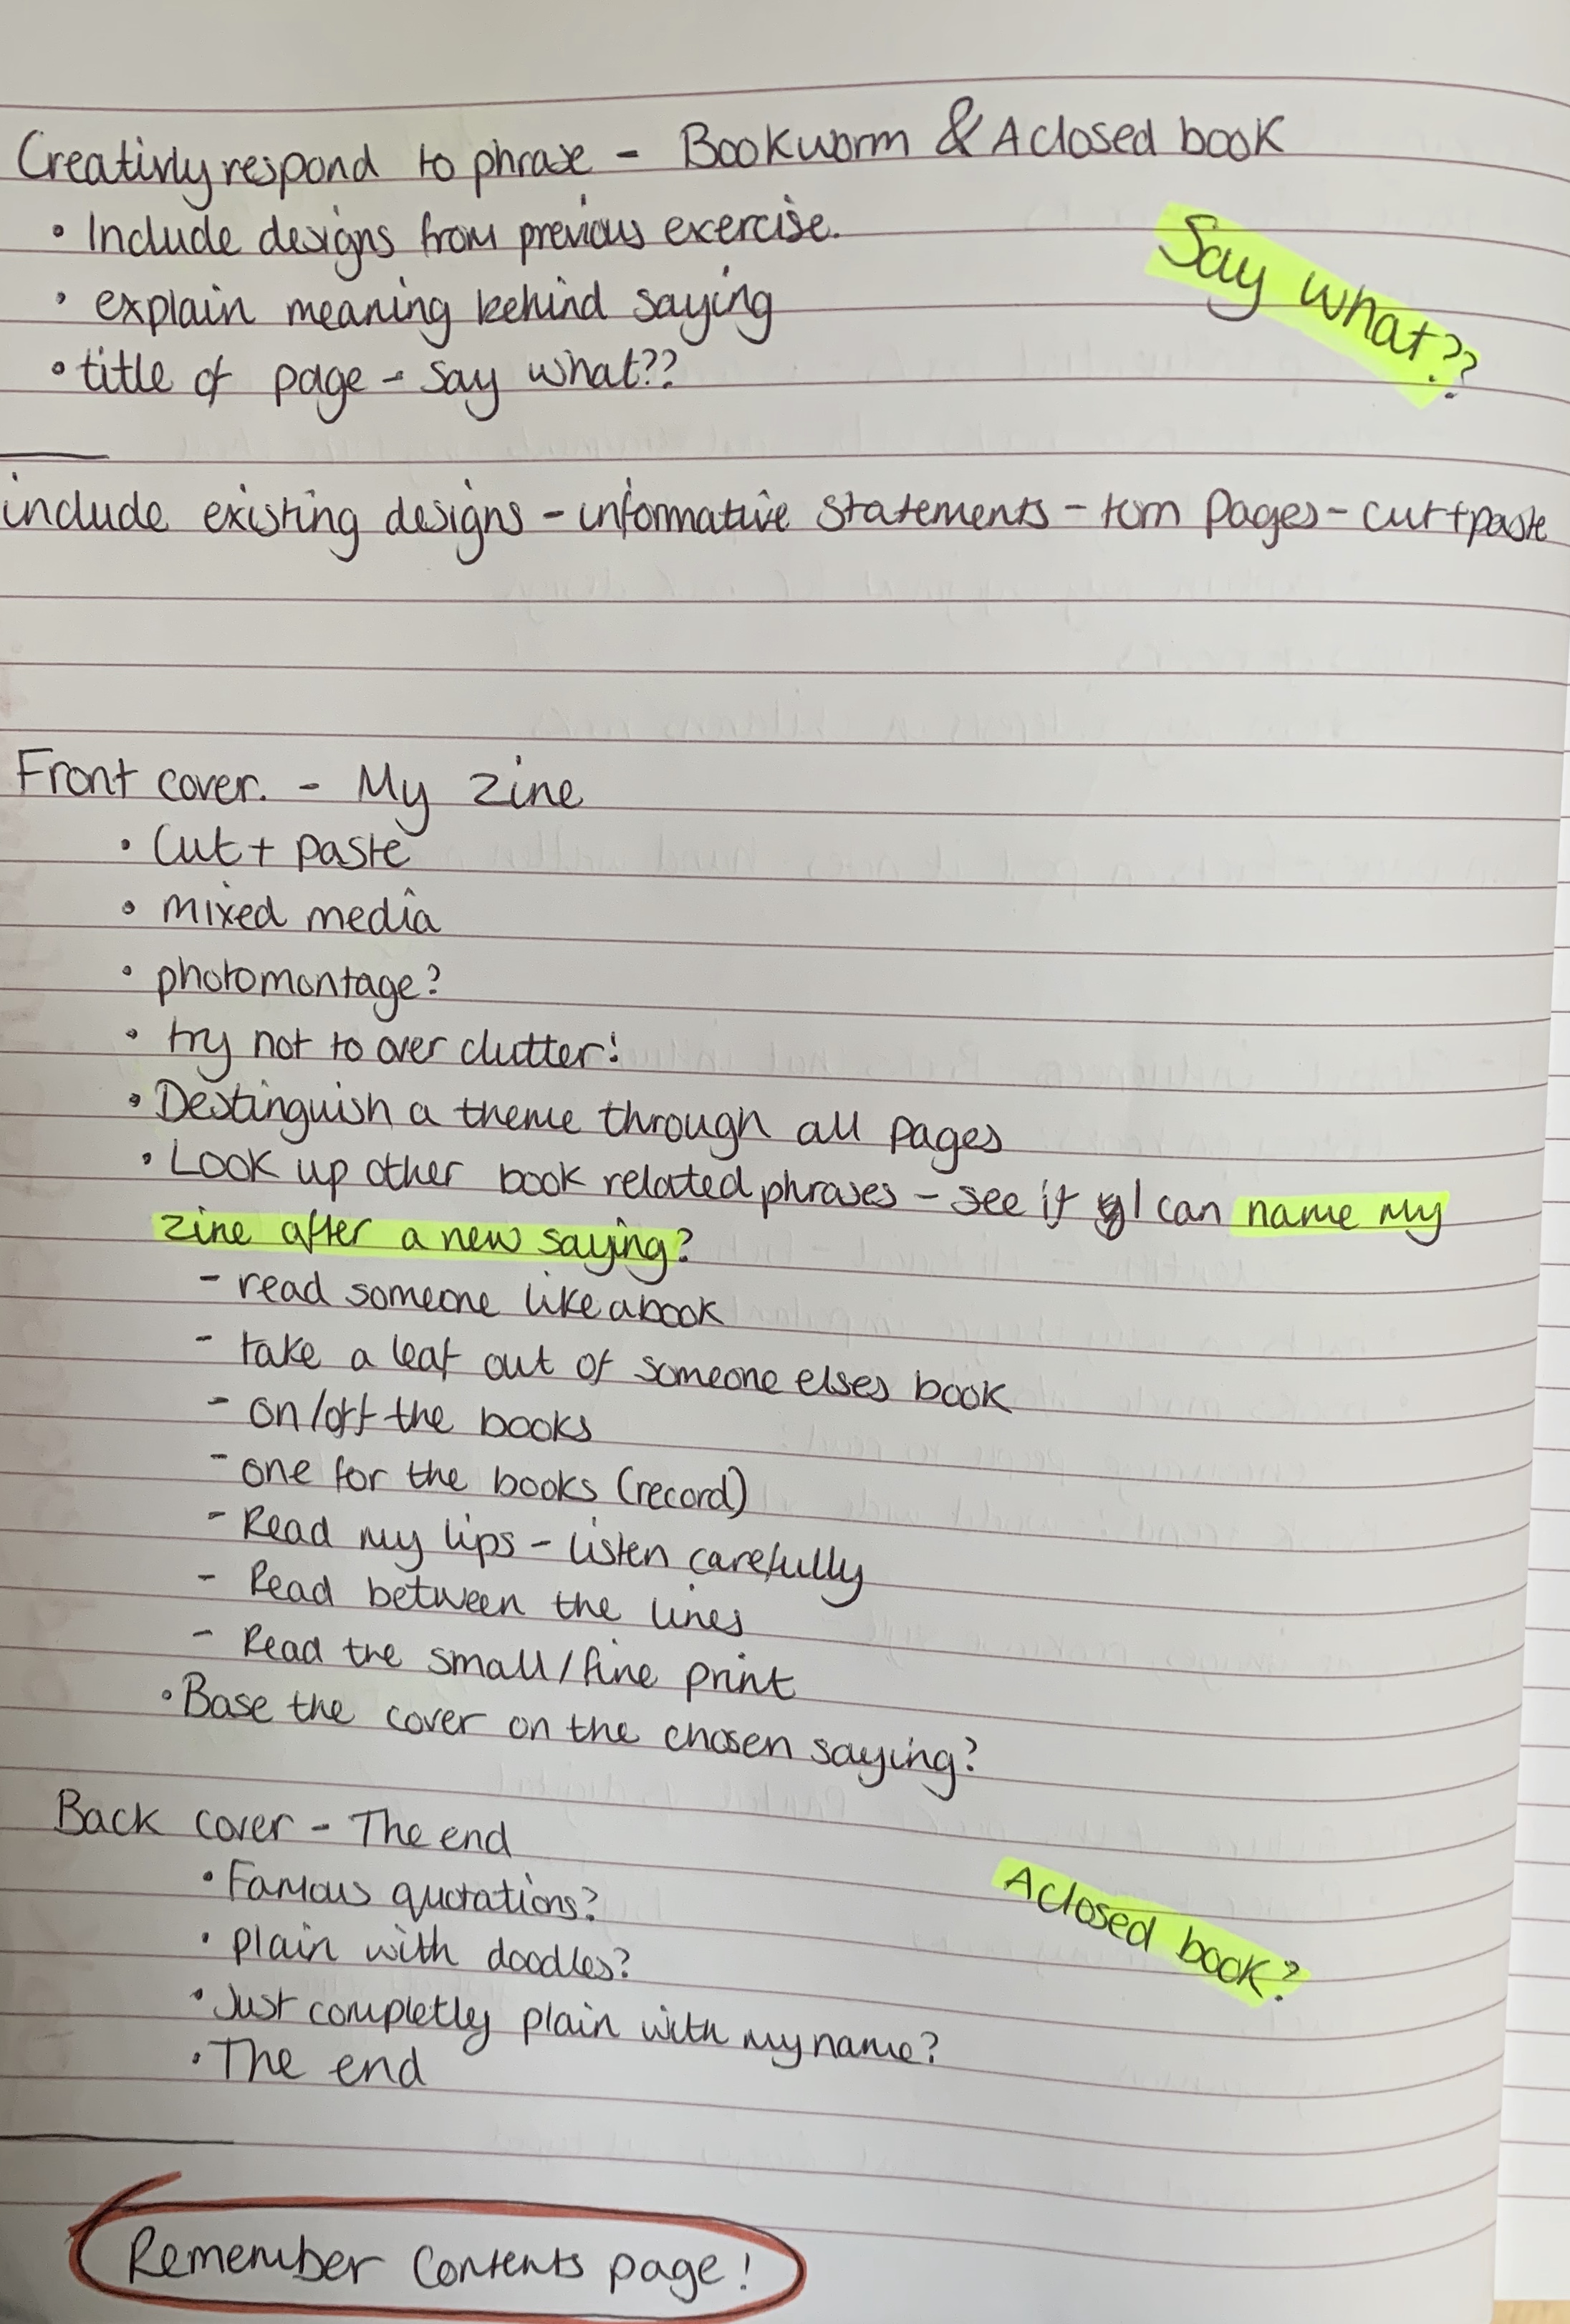 Creativly respond to phrase - Bookworm & A closed book
• Include designs from previous exercise.
Say what??
• explain meaning behind saying
• title of page - Say what??
include existing designs - informative statements - torn pages - cut + paste
Front cover. - My zine
• Cut + paste
• mixed media
• photomontage?
• try not to over clutter!
• Destinguish a theme through all pages
• Look up other book related phrases - see if I can name my
zine after a new saying?
- read someone like a book
- take a leaf out of someone elses book
- on/off the books
- one for the books (record)
- Read my lips - listen carefully
- Read between the lines
- Read the small/fine print
• Base the cover on the chosen saying?
Back cover - The end
• Famous quotations?
A closed book?
• plain with doodles?
• Just completly plain with my name?
• The end
Remember Contents page!